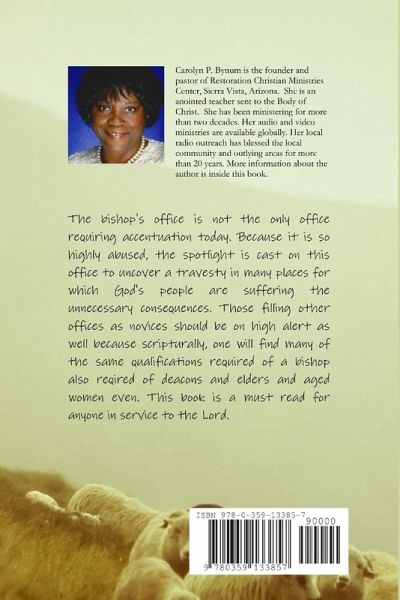 Carolyn P. Bynum is the founder and
pastor of Restoration Christian Ministries
Center, Sierra Vista, Arizona. She is an
anointed teacher sent to the Body of
Christ. She has been ministering for more
than two decades. Her audio and video
ministries are available globally. Her local
radio outreach has blessed the local
community and outlying areas for more
than 20 years. More information about the
author is inside this book.
The bishop's office is not the only office
requiring accentuation today. Because it is so
highly abused, the spotlight is cast on this
office to uncover a travesty in many places for
which God's people are suffering the
unnecessary consequences. Those filling other
offices as novices should be on high alert as
well because scripturally, one will find many of
the same qualifications required of a bishop
also reqired of deacons and elders and aged
women even. This book is a must read for
anyone in service to the Lord.
ISBN 978-0-359-13385-7
90000
9 780359 133857